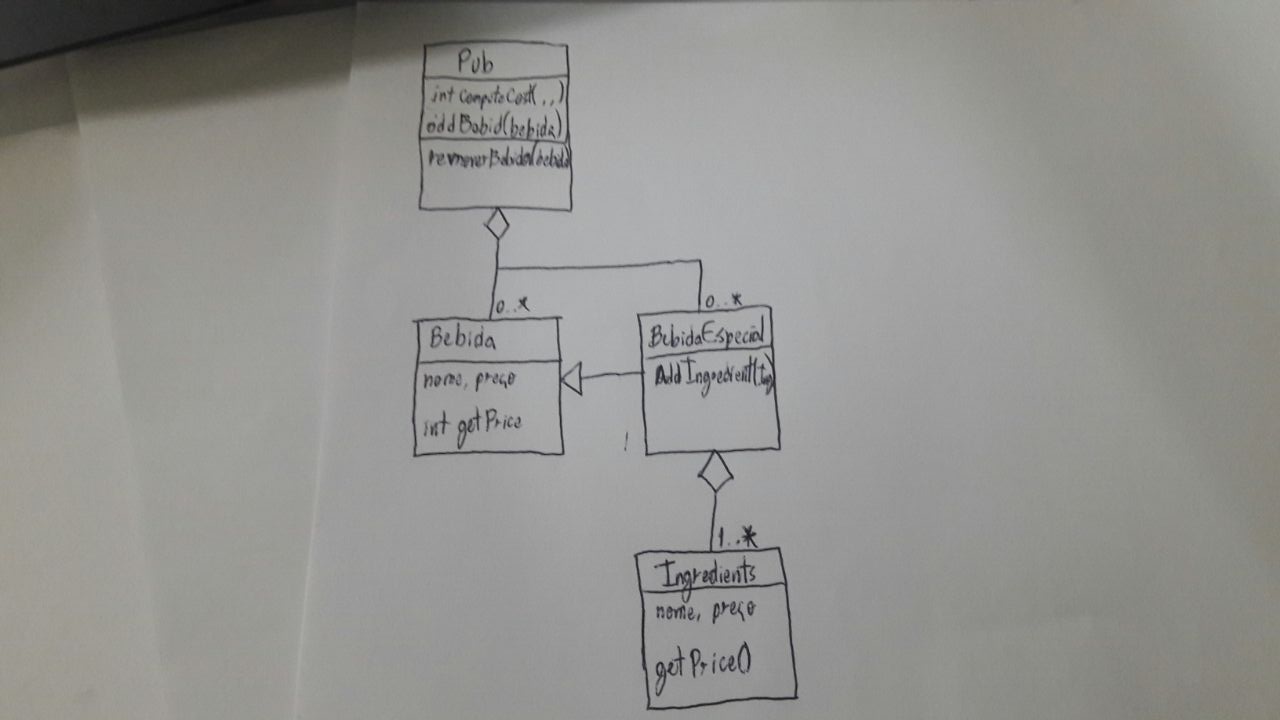 Pub
int computeCost(,,)
addBebid(bebida)
removerBebida(bebida)
0..*
0..*
Bebida
nome, preço
int getPrice
BebidaEspecial
AddIngredient(Ing)
1..*
Ingredients
nome, preço
getPrice()